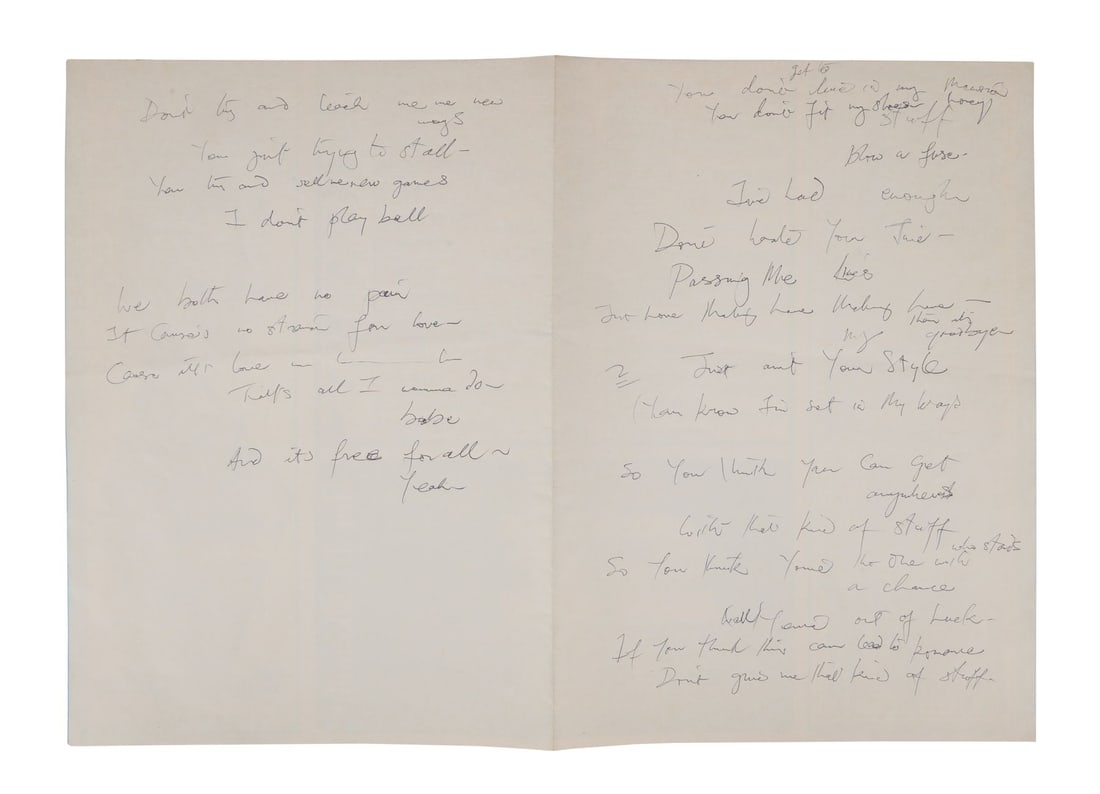 Don't try and teach me no new
ways
You just trying to stall –
You try and sell me new games
I don't play ball
We both have no pain
It Cause's no strain for love –
Cause it's love
That's all I wanna do –
babe
And its free for all ~
Yeah
get to
You don't live in my Mansion
You don't fit my honey
stuff
Blow a fuse -
I've had enough
Don't waste Your Time –
Passing Me lines
Just love Making love Making love –
then it's
goodbye
2 Just ain't Your Style
(You know I'm set in My Ways
So You think You Can Get
anywhere
With that kind of stuff
who stands
So You think You're the One with
a chance
Well You're out of Luck -
If You think this can lead to Romance
Don't give me that kind of stuff -